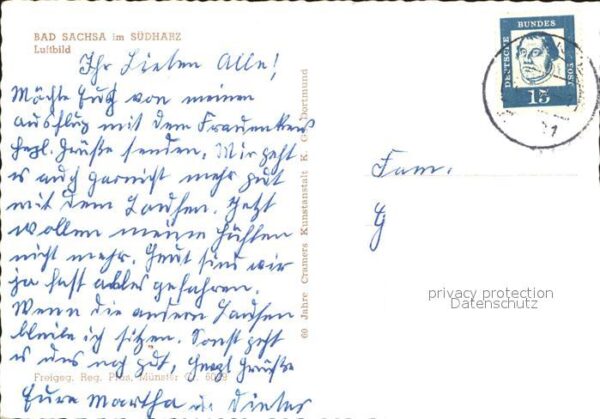 BAD SACHSA im SÜDHARZ
Luftbild
Ihr Lieben Alle!
Möchte Euch von meinem
Ausflug mit dem Frauenkreis
herzl. Grüße senden. Mir geht
es auch garnicht mehr gut
mit dem Laufen. Jetzt
wollen meine Hüften
nicht mehr. Heut sind wir
ja fast alles gefahren.
Wenn die andern Laufen
bleibe ich sitzen. Sonst geht
es uns noch gut, Herzl Grüße
Eure Martha u. Dieter
Freigeg. Reg. Präs. Münster
60 Jahre Cramers Kunstanstalt K. G. Dortmund
DEUTSCHE
BUNDES
POST
15
Fam.
G
privacy protection
Datenschutz